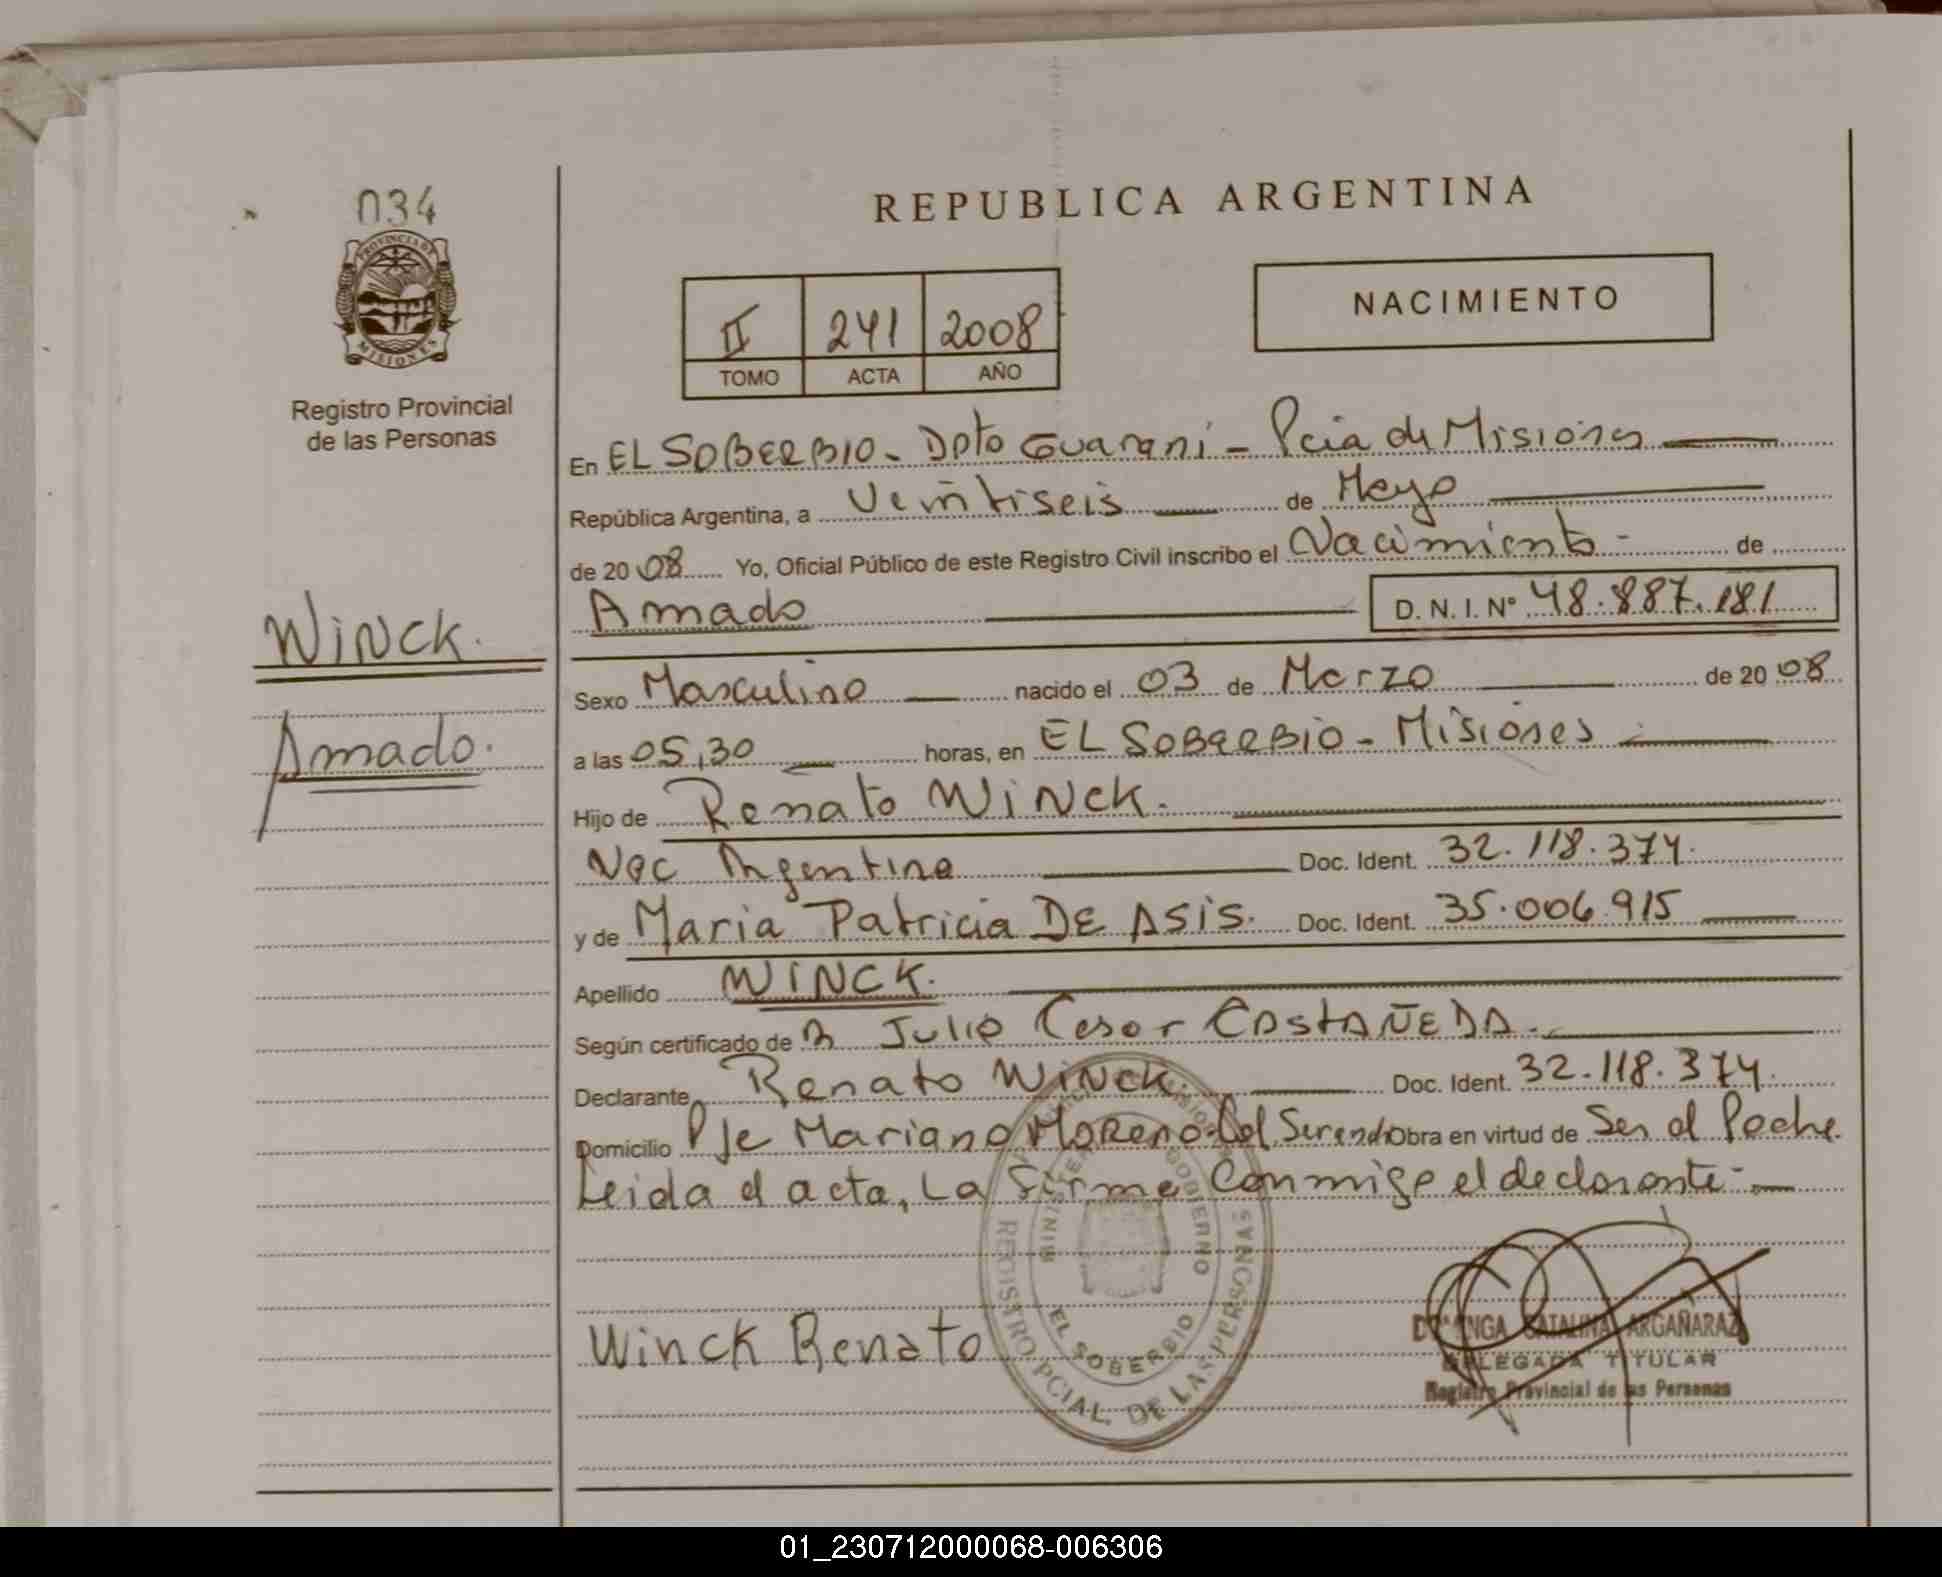 034
PROVINCIA DE
MISIONES
Registro Provincial
de las Personas
WINCK.
Amado.
REPUBLICA ARGENTINA
II 241 2008
TOMO ACTA AÑO
NACIMIENTO
En EL SOBERBIO - Dpto Guaraní - Pcia de Misiones
República Argentina, a Veintiseis de Mayo
de 2008 Yo, Oficial Público de este Registro Civil inscribo el Nacimiento - de
Amado D. N. I. Nº 48.887.181
Sexo Masculino nacido el 03 de Marzo de 2008
a las 05,30 horas, en EL SOBERBIO - Misiones
Hijo de Renato WINCK.
Nac Argentina Doc. Ident. 32.118.374.
y de Maria Patricia DE ASIS. Doc. Ident. 35.006.915
Apellido WINCK.
Según certificado de Julio Cesar CASTAÑEDA.
Declarante Renato WINCK. Doc. Ident. 32.118.374.
Domicilio Pje Mariano Moreno - Col. Obra en virtud de Ser el Padre.
Leida el acta, La firma conmigo el declarante -
Winck Renato
MINISTERIO GOBIERNO
EL SOBERBIO
REGISTRO PCIAL. DE LAS PERSONAS
DOMINGA CATALINA ARGAÑARAZ
DELEGADA TITULAR
Registro Provincial de las Personas
01_230712000068-006306